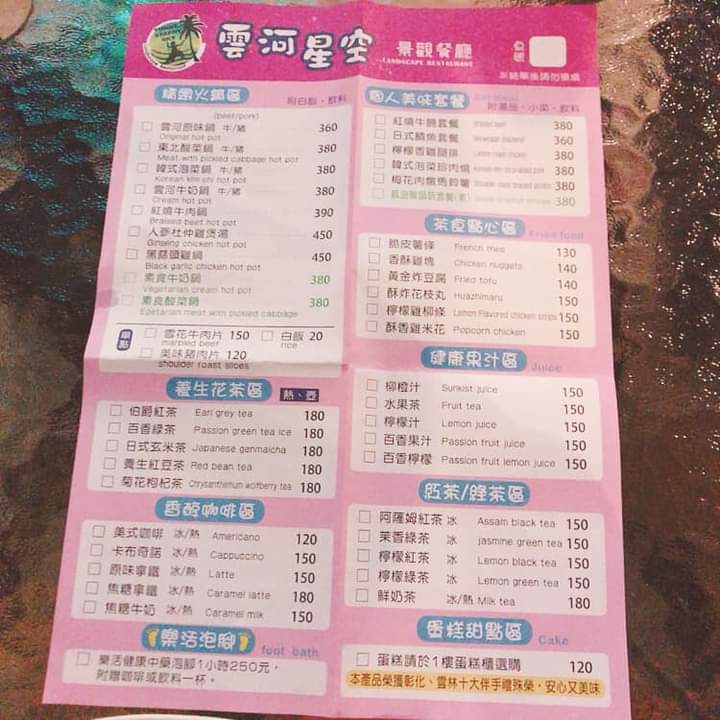 雲河星空 景觀餐廳
LANDSCAPE RESTAURANT
桌號
精緻火鍋區 附白飯、飲料
(beef/pork)
雲河原味鍋 牛/豬 360
Original hot pot
東北酸菜鍋 牛/豬 380
Meat with pickled cabbage hot pot
韓式泡菜鍋 牛/豬 380
Korean kim chi hot pot
雲河牛奶鍋 牛/豬 380
Cream hot pot
紅燒牛肉鍋 390
Braised beef hot pot
人蔘杜仲雞煲湯 450
Ginseng chicken hot pot
黑蒜頭雞鍋 450
Black garlic chicken hot pot
素食牛奶鍋 380
Vegetarian cream hot pot
素食酸菜鍋 380
Egetarian meat with pickled cabbage
單點
雪花牛肉片 150 白飯 20
marbled beef rice
美味豬肉片 120
shoulder roast slices
養生花茶區 熱、壺
伯爵紅茶 Earl grey tea 180
百香綠茶 Passion green tea ice 180
日式玄米茶 Japanese genmaicha 180
養生紅豆茶 Red bean tea 180
菊花枸杞茶 Chrysanthemum wolfberry tea 180
香醇咖啡區
美式咖啡 冰/熱 Americano 120
卡布奇諾 冰/熱 Cappuccino 150
原味拿鐵 冰/熱 Latte 150
焦糖拿鐵 冰/熱 Caramel latte 180
焦糖牛奶 冰/熱 Caramel milk 150
樂活泡腳 foot bath
樂活健康中藥泡腳1小時250元,
附贈咖啡或飲料一杯。
個人美味套餐
附湯品、小菜、飲料
紅燒牛腩套餐 380
日式鯖魚套餐 360
檸檬香雞腿排 380
韓式泡菜珍肉燒 380
梅花肉燉馬鈴薯 380
380
茶食點心區 Fried food
脆皮薯條 French fries 130
香酥雞塊 Chicken nuggets 140
黃金炸豆腐 Fried tofu 140
酥炸花枝丸 Huazhimaru 150
檸檬雞柳條 Lemon Flavored chicken strips 150
酥香雞米花 Popcorn chicken 150
健康果汁區 Juice
柳橙汁 Sunkist juice 150
水果茶 Fruit tea 150
檸檬汁 Lemon juice 150
百香果汁 Passion fruit juice 150
百香檸檬 Passion fruit lemon juice 150
紅茶/綠茶區
阿薩姆紅茶 冰 Assam black tea 150
茉香綠茶 冰 jasmine green tea 150
檸檬紅茶 冰 Lemon black tea 150
檸檬綠茶 冰 Lemon green tea 150
鮮奶茶 冰/熱 Milk tea 180
蛋糕甜點區 Cake
蛋糕請於1樓蛋糕櫃選購 120
本產品榮獲彰化、雲林十大伴手禮殊榮,安心又美味